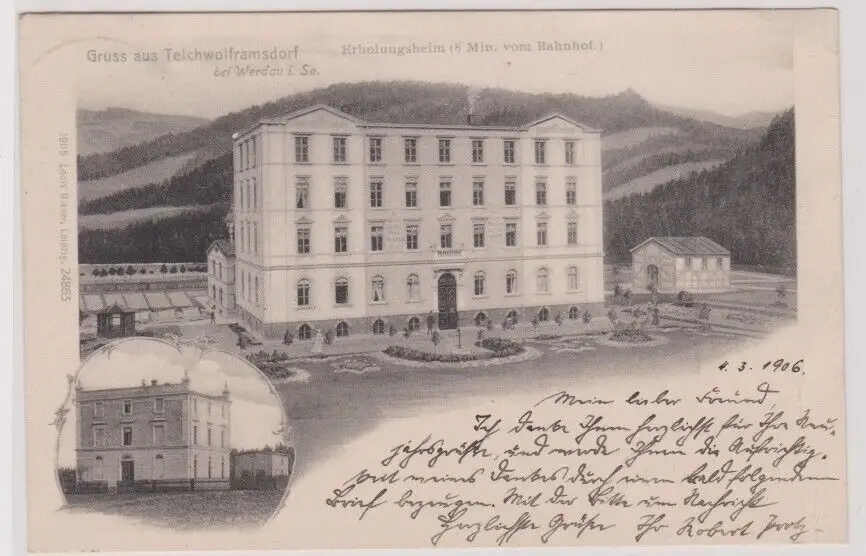 Gruss aus Teichwolframsdorf
bei Werdau i. Sa.
Erholungsheim (8 Min. vom Bahnhof.)
1905 Louis Glaser, Leipzig. 24853
4. 3. 1906.
Mein lieber Freund,
Ich danke Ihnen herzlichst für Ihre Neu-
jahrsgrüße, und werde Ihnen die Aufrichtig-
keit meines Dankes durch einen bald folgenden
Brief bezeugen. Mit der Bitte um Nachricht
Herzlichste Grüße Ihr Robert